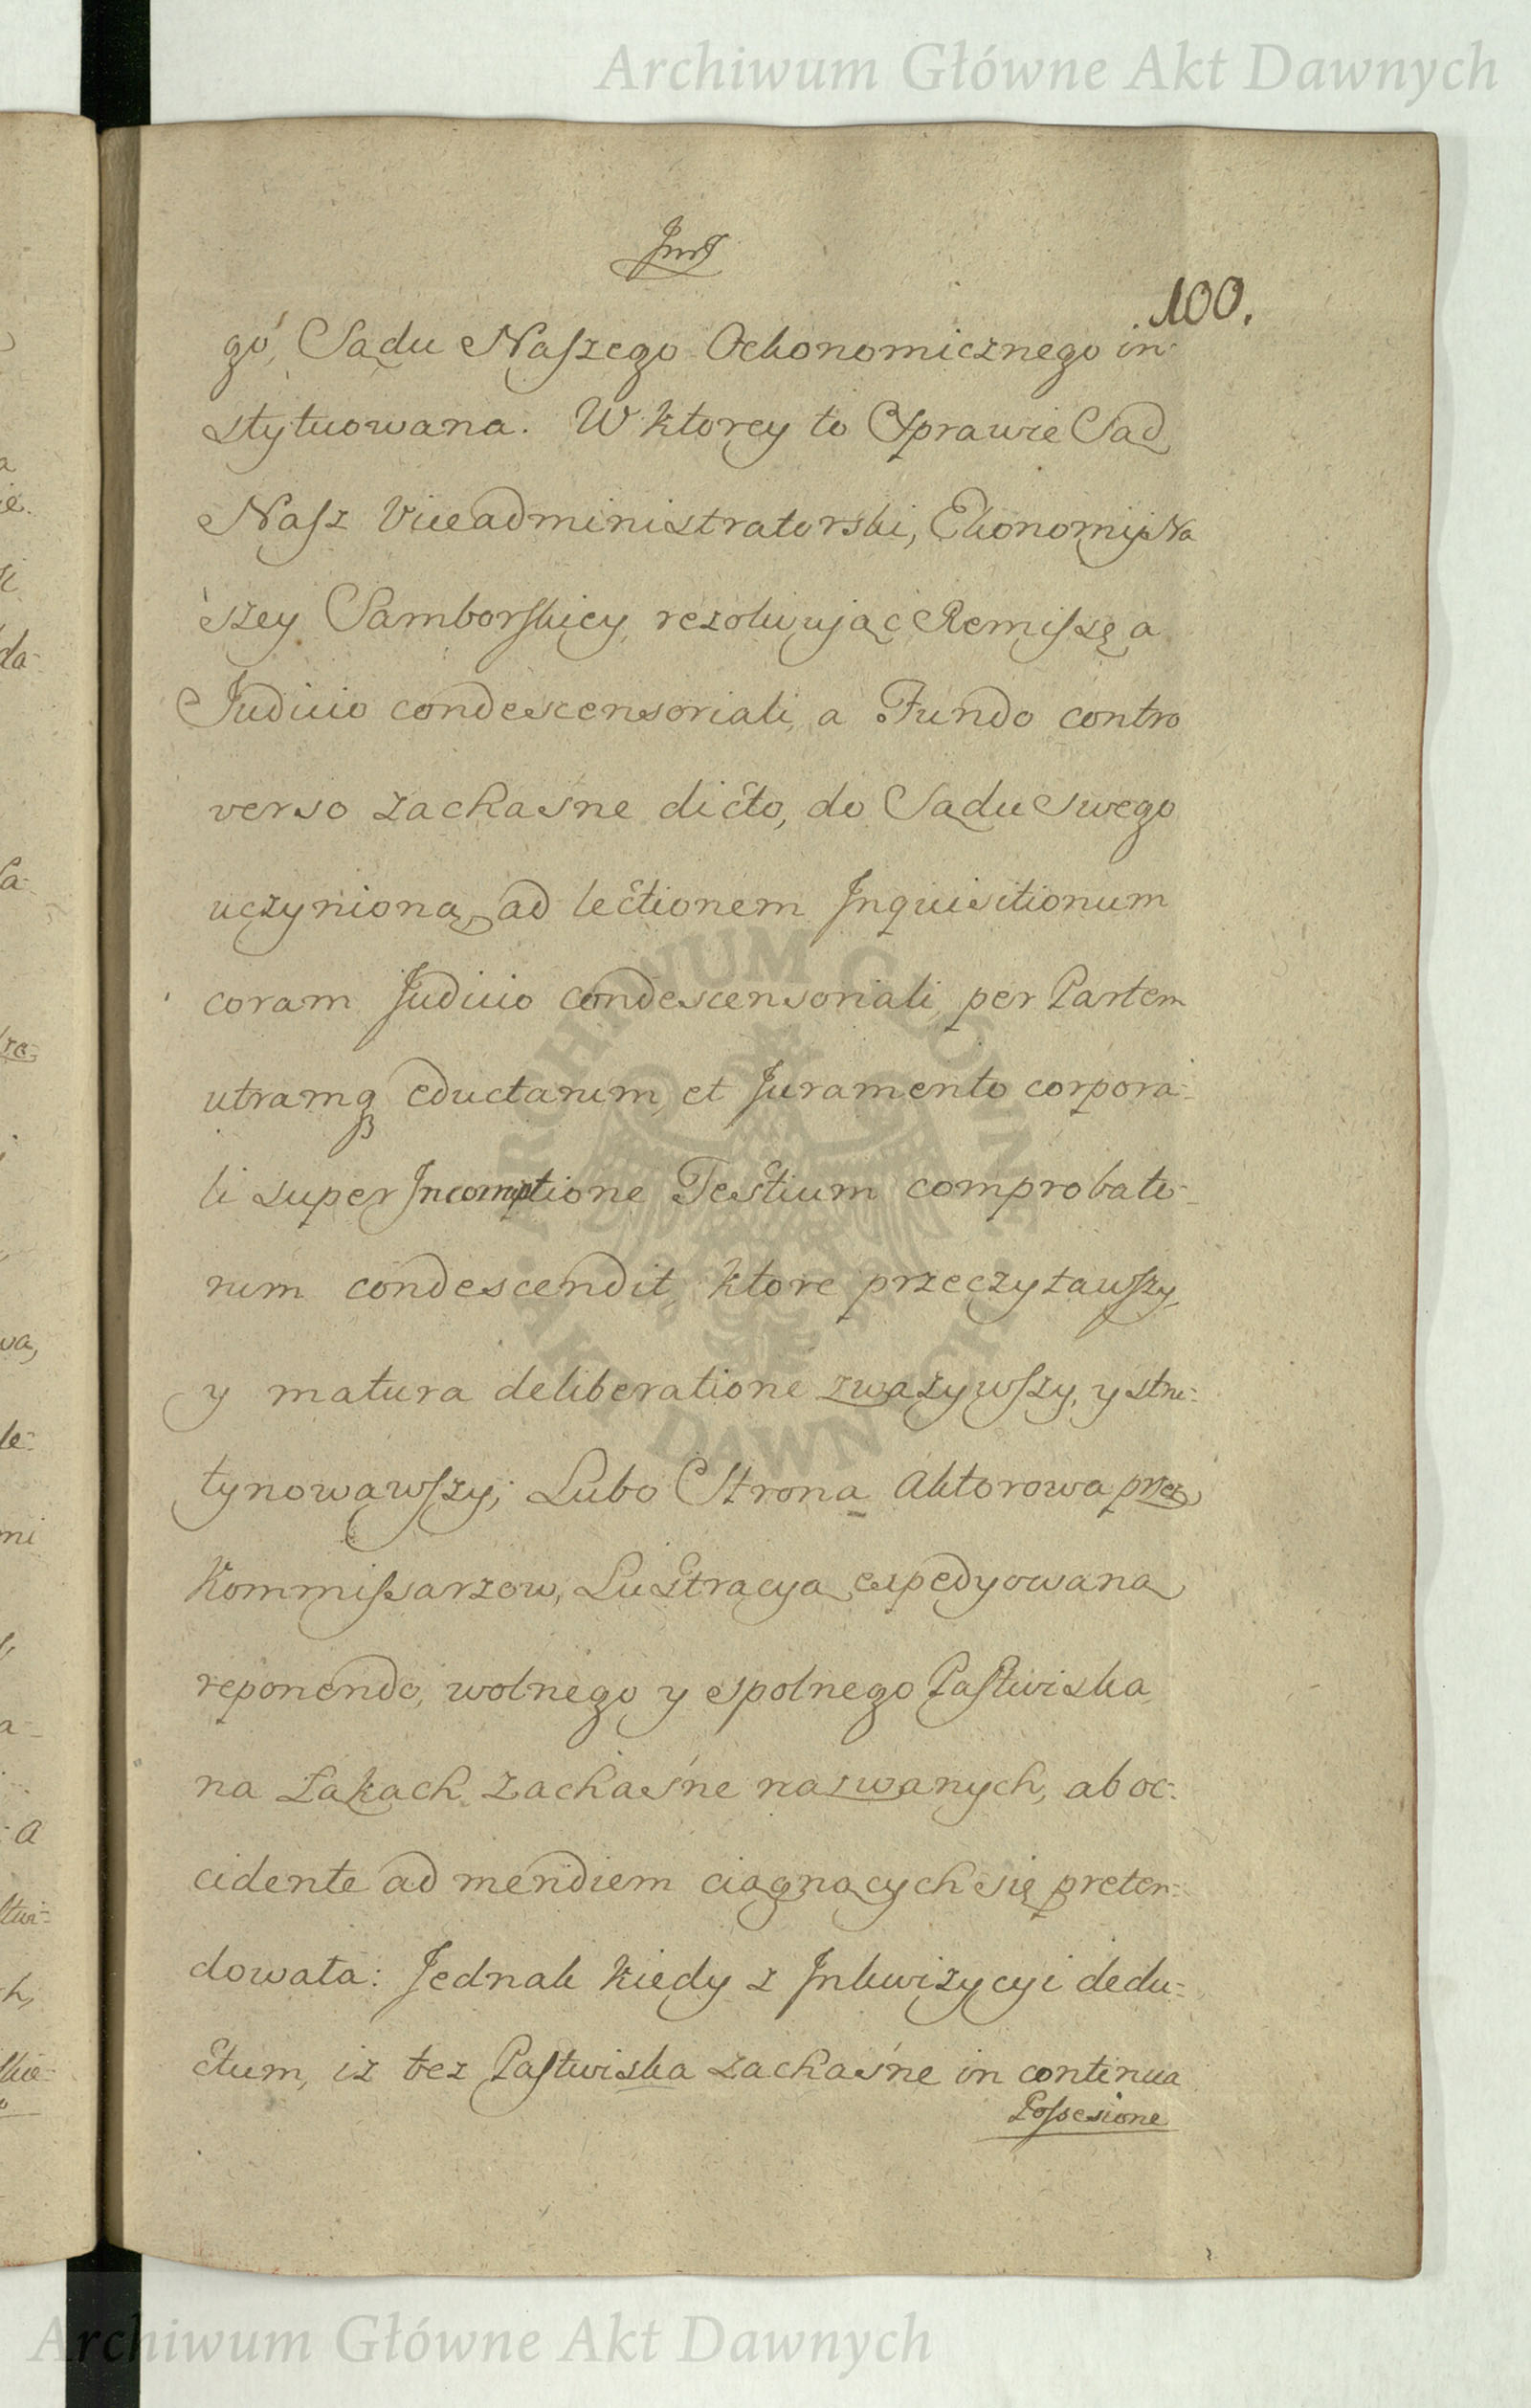 Archiwum Główne Akt Dawnych
100.
go, Sądu Naszego Oekonomicznego in-
stytuowana. W ktorey to Sprawie Sąd
Nasz Viceadministratorski, Ekonomij Na
szey Samborskiey, rezolwując Remissę a
Judicio condescensoriali, a Fundo contro
verso zachaśne dicto, do Sądu Swego
uczynioną, ad lectionem Inquisitionum
coram Judicio condescensoriali, per Partem
utramq eductarum, et Juramento corpora-
li super Incorruptione Testium comprobato-
rum condescendit, ktore przeczytawszy,
y matura deliberatione zważywszy, y stru-
tynowawszy; Lubo Strona Aktorowa przez
Kommissarzow, Lustracya expedyowaną
reponendo, wolnego y spolnego Pastwiska
na Łąkach zachaśne nazwanych, ab oc-
cidente ad meridiem ciągnących się preten-
dowała: Jednak kiedy z Inkwizycyi dedu-
ctum, iż bez Pastwiska zachaśne in continua
Possesione
ARCHIWUM GŁÓWNE AKT DAWNYCH
Archiwum Główne Akt Dawnych